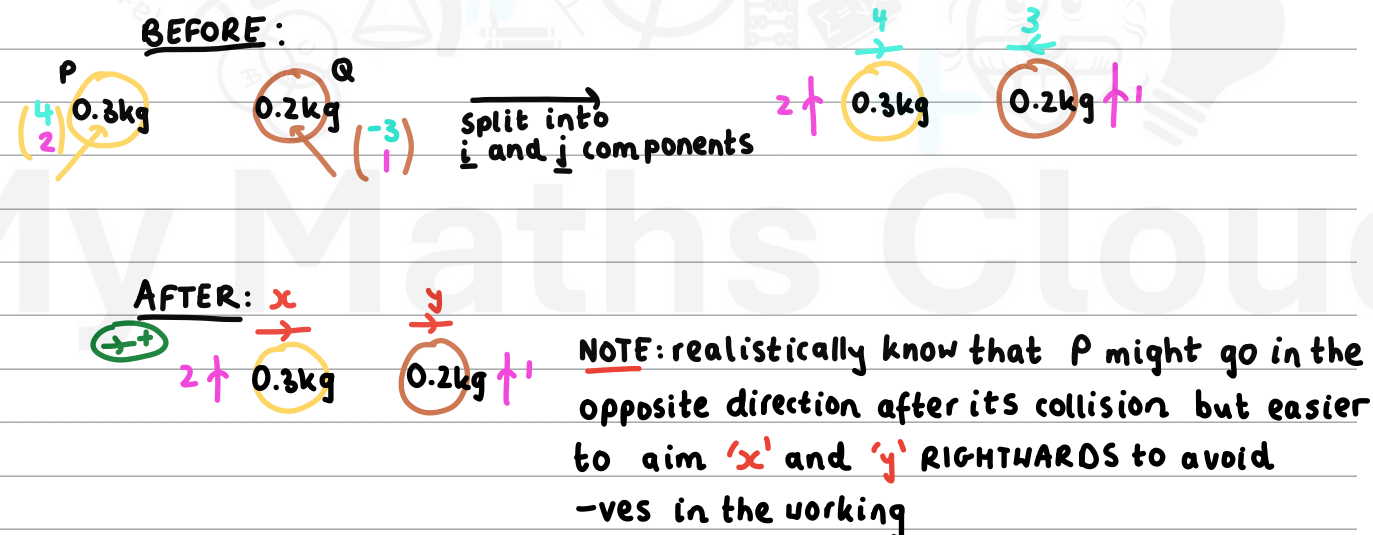 BEFORE:
P
Q
4
2
0.3kg
0.2kg
-3
1
split into
i and j components
4
3
2
0.3kg
0.2kg
1
AFTER:
x
y
+
2
0.3kg
0.2kg
1
NOTE: realistically know that P might go in the
opposite direction after its collision but easier
to aim 'x' and 'y' RIGHTWARDS to avoid
-ves in the working
My Maths Cloud